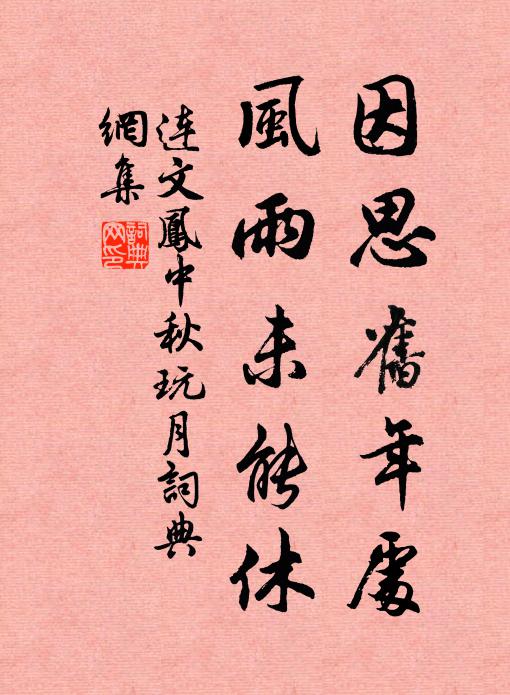 因思舊年處
風雨未能休
連文鳳中秋玩月詞典
網集
詞典
网印